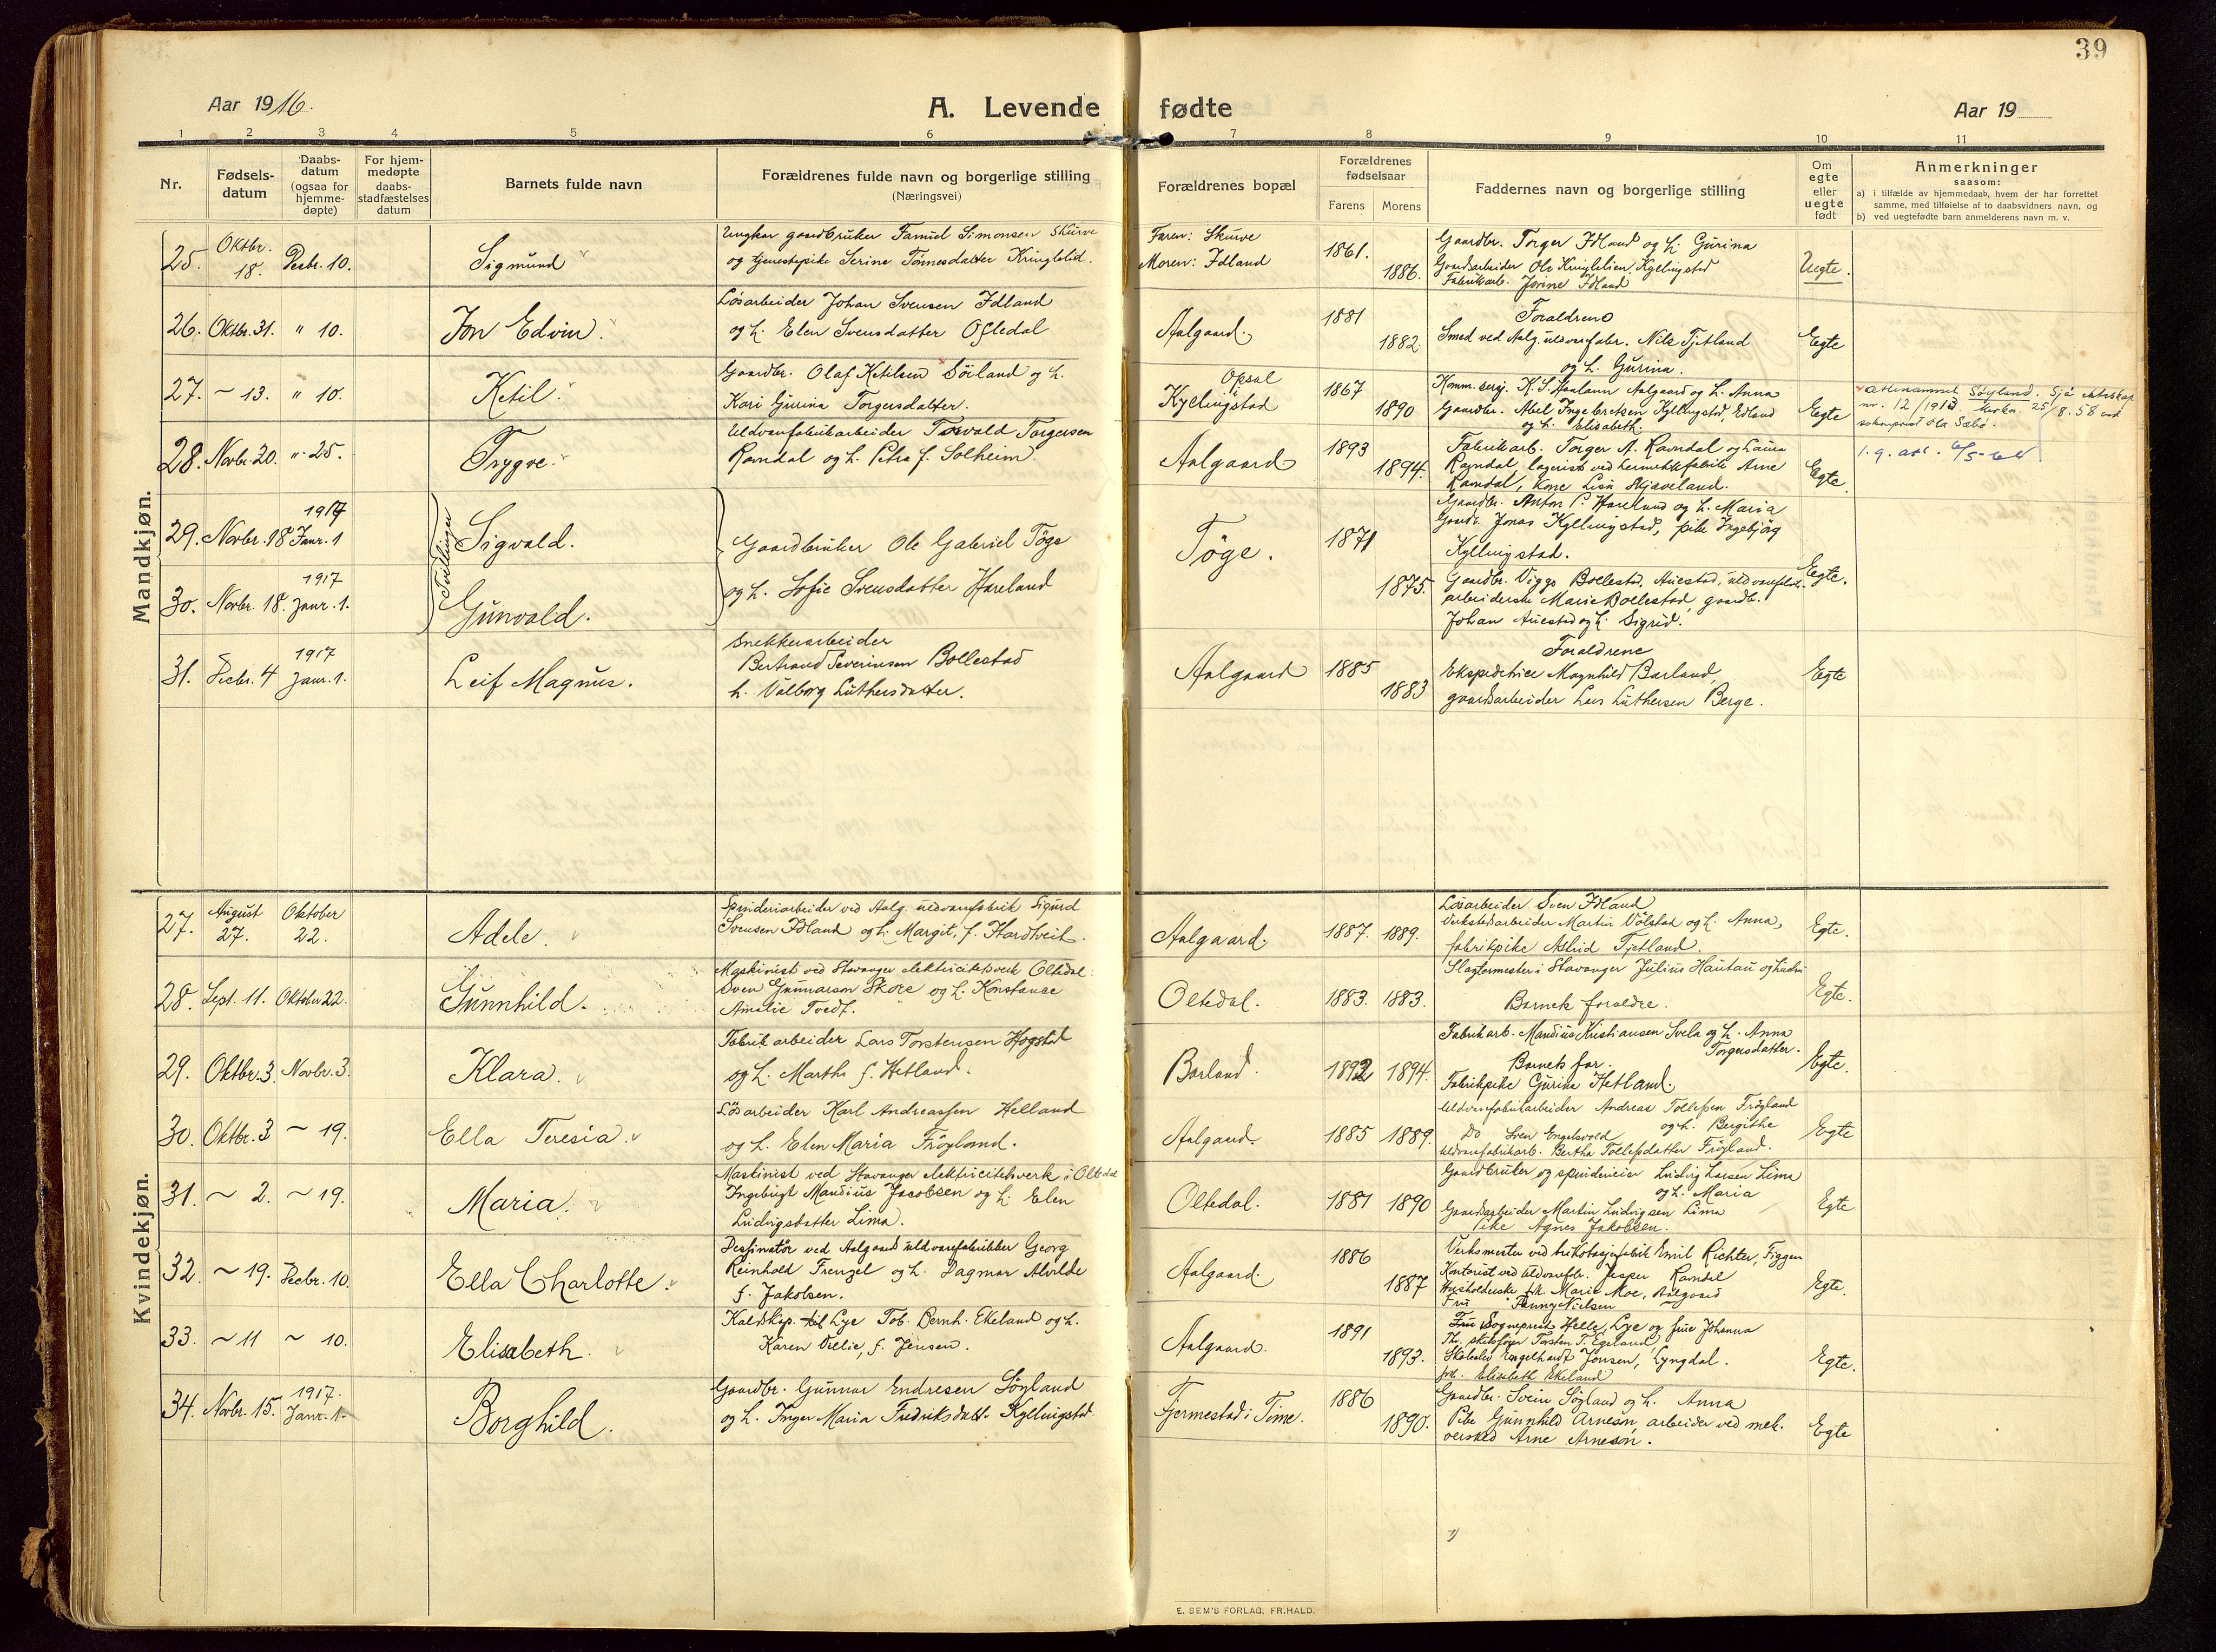 39
Aar 1916.
A. Levende fødte
Aar 19
1 2 3 4 5 6 7 8 9 10 11
Nr.
Fødsels-
datum
Daabs-
datum
(ogsaa for
hjemme-
døpte)
For hjem-
medøpte
daabs-
stadfæstelses
datum
Barnets fulde navn
Forældrenes fulde navn og borgerlige stilling
(Næringsvei)
Forældrenes bopæl
Forældrenes
fødselsaar
Farens Morens
Faddernes navn og borgerlige stilling
Om
egte
eller
uegte
født
Anmerkninger
saasom:
a) i tilfælde av hjemmedaab, hvem der har forrettet
samme, med tilføielse af to daabsvidners navn, og
b) ved uegtefødte barn anmelderens navn m. v.
Mandkjøn.
25. Oktbr. 18. Desbr. 10. Sigmund
Ungkar gaardbruker Samuel Simonsen Skurve
og tjenestepike Serine Tønnesdatter Kringlelid.
Faren: Skurve
Moren: Idland
1861. 1886.
Gaardbr. Torger Idland og h. Gurina
Gaardsarbeider Ole Kringlelien, Kyllingstad
Fabrikarb. Jorine Idland
Uegte.
26. Oktbr. 31. " 10. Jon Edvin.
Løsarbeider Johan Svensen Idland
og h. Elen Svensdatter Oftedal
Aalgaard.
1881 1882.
Forældrene
Smed ved Aalg. uldvarefabr. Nils Tjetland
og h. Gurina.
Egte
27. ~ 13. " 10. Ketil.
Gaardbr. Olaf Ketilsen Søiland og h.
Kari Gurina Torgersdatter.
Opsal
Kyllingstad
1867 1890
Komm. serg. K. S. Haaland Aalgaard og h. Anna
Gaardbr. Abel Ingebretsen Kyllingstad, Edland
og h. Elisabeth.
Egte
ættenamnet Søyland. Sjå ekteskap
nr. 12/1913 Merkn. 25/8.58 ved
sokneprest Ola Sæbø.
28. Novbr. 20. " 25. Trygve.
Uldvarefabrikarbeider Torvald Torgersen
Ravndal og h. Petra f. Solheim
Aalgaard
1893 1894.
Fabrikarb. Torger A. Ravndal og Laura
Ravndal, lagerist ved hermetikfabrik Arne
Ravndal, kone Lisa Skjæveland.
Egte.
29. Novbr. 18 1917 Janr. 1 Sigvald.
Tvillinger
Gaardbruker Ole Gabriel Tøge
og h. Sofie Svensdatter Hareland
Tøge.
1871 1875.
Gaardbr. Anton P. Hareland og h. Maria
Gaardb. Jonas Kyllingstad, pike Ingebjørg
Kyllingstad.
Egte.
30. Novbr. 18. 1917 Janr. 1. Gunvald.
Gaardbr. Viggo Bollestad, Auestad, uldvarefabrik-
arbeiderske Marie Bollestad, gaardb.
Johan Auestad og h. Sigrid.
31. Desbr. 4 1917 Janr. 1. Leif Magnus.
Snekkerarbeider
Bertrand Severinsen Bollestad
h. Valborg Luthersdatter.
Aalgaard
1885 1883
Forældrene
Ekspeditrice Magnhild Barland,
gaardsarbeider Lars Luthersen Berge.
Egte
Kvindekjøn.
27. August 27. Oktober 22. Adele.
Spinderiarbeider ved Aalg. uldvarefabrik Sigurd
Svensen Idland og h. Margit, f. Hardtveit.
Aalgaard.
1887. 1889.
Løsarbeider Sven Idland
Verkstedarbeider Martin Vølstad og h. Anna,
fabrikpike Astrid Tjetland.
Egte.
28. Sept. 11. Oktober 22. Gunnhild.
Maskinist ved Stavanger elektricitetsverk Oltedal:
Sven Gunnarson Skore og h. Konstanse
Amalie Tvedt.
Oltedal.
1883. 1883.
Slagtermester i Stavanger Julius Hautau og hustru
Barnets forældre.
Egte.
29. Oktbr. 3. Novbr. 3. Klara.
Fabrikarbeider Lars Torstensen Høgstad
og h. Martha f. Hetland.
Barland.
1892 1894.
Fabrikarb. Mandius Kristiansen Svela og h. Anna
Torgersdatter.
Barnets far.
Fabrikpike Gurine Hetland.
Egte.
30. Oktbr. 3 ~ 19. Ella Teresia.
Løsarbeider Karl Andreassen Helland
og h. Elen Maria Frøyland.
Aalgaard.
1885 1889.
Uldvarefabrikarbeider Andreas Tollefsen Frøyland
og h. Bergithe
Do Sven Engelsvold
Uldvarefabrikarb. Bertha Tollefsdatter Frøyland.
Egte
31. ~ 2. ~ 19. Maria.
Maskinist ved Stavanger elektricitetsverk i Oltedal
Ingebrigt Mandius Jacobsen og h. Elen
Ludvigsdatter Lima.
Oltedal.
1881 1890
Gaardbruker og spinderieier Ludvig Larsen Lima
og h. Maria
Gaardsarbeider Martin Ludvigsen Lima
pike Agnes Jakobsen.
Egte
32. ~ 19. Desbr. 10. Ella Charlotte.
Dessinatør ved Aalgaard uldvarefabrikker Georg
Reinhold Frenzel og h. Dagmar Alvilde
f. Jakobsen.
Aalgaard.
1886 1887
Verksmester ved trikotagefabrik Emil Richter, Figgen
Kontorist ved uldvarefbr. Jesper Ravndal
Husholderske frk. Marie Moe, Aalgaard
Fru Fanny Nielsen
Egte.
33. ~ 11 ~ 10. Elisabeth.
Kaldskap. til Lye Tob. Bernh. Ekeland og h.
Karen Otelie, f. Jensen.
Aalgaard.
1891 1893.
Sogneprest Helle, Lye og frue Johanna
Th. skibsfører Torsten T. Egeland
Engelhardt Jonsen, Lyngdal.
frk. Elisabeth Ekeland
Egte.
34. Novbr. 15. 1917. Janr. 1. Borghild.
Gaardbr. Gunnar Endresen Søyland
og h. Inger Maria Fredriksdatt. Kyllingstad.
Fjermestad i Time.
1886 1890.
Gaardbr. Svein Søyland og h. Anna
Pike Gunnhild Arneson arbeider ved mek.
versked Arne Arneson.
Egte
E. SEM'S FORLAG, FR.HALD.